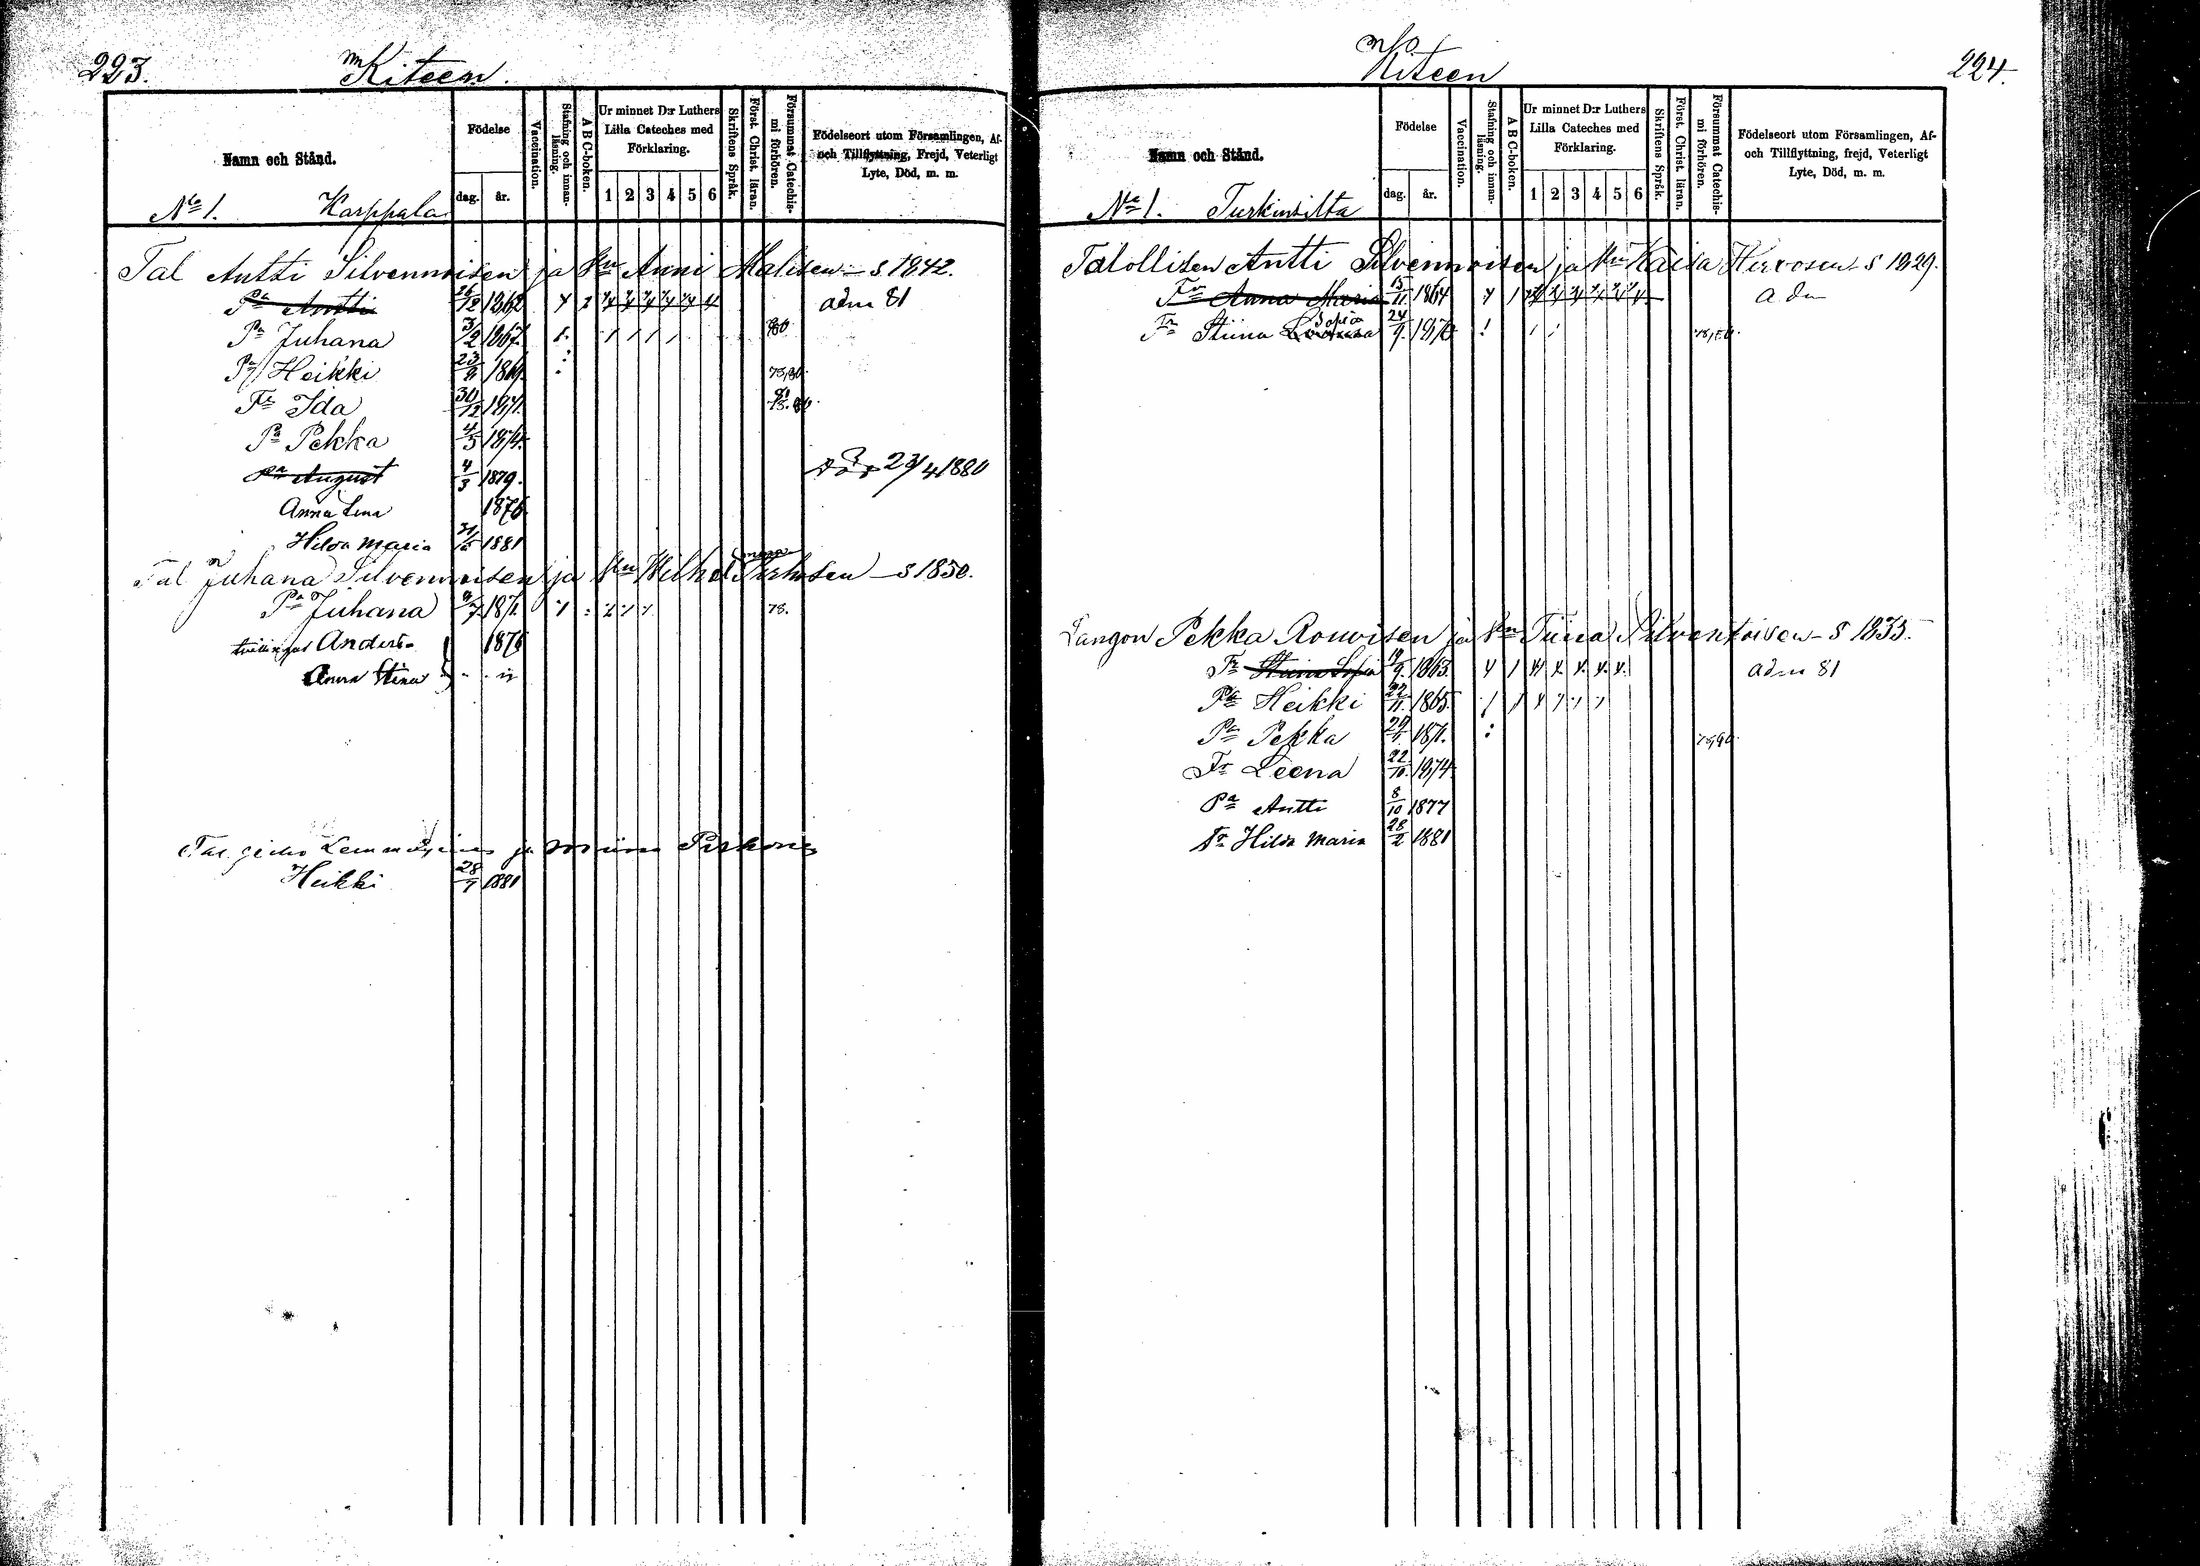 223. Kiteen.
Namn och Stånd.
Födelse
dag. år.
Vaccination.
Stafning och innanläsning.
A B C-boken.
Ur minnet D:r Luthers
Lilla Cateches med
Förklaring.
1 2 3 4 5 6
Skriftens Språk.
Först. Christ. läran.
Försummat Catechismi förhören.
Födelseort utom Församlingen, Af-
och Tillflyttning, Frejd, Veterligt
Lyte, Död, m. m.
No 1. Karppala
Tal Antti Silvennoisen ja Anni Malisen - s 1842.
Pa Antti 26/12 1862 adm 81
Pa Juhana 3/2 1867. 80
Pa Heikki 23/9 1869. 75,80.
Tr Ida 30/12 1871.
Pa Pekka 4/3 1874.
Pa August 4/3 1879. Död 23/4 1880
Anna Lena 1876
Hilda Maria 1881
Tal Juhana Silvennoisen ja Vilhelmina Pirhosen - s 1850.
Pa Juhana 9/7 1871. 78.
tvillingar Anders 1876
Anna Stina
Tal. Lemmetyinen ja Miina Pirhonen
Heikki 28/7 1881
Kiteen 224.
Namn och Stånd.
Födelse
dag. år.
Vaccination.
Stafning och innanläsning.
A B C-boken.
Ur minnet D:r Luthers
Lilla Cateches med
Förklaring.
1 2 3 4 5 6
Skriftens Språk.
Först. Christ. läran.
Försummat Catechismi förhören.
Födelseort utom Församlingen, Af-
och Tillflyttning, frejd, Veterligt
Lyte, Död, m. m.
No 1. Turkinsilta
Talollisen Antti Silvennoisen ja Kaisa Hirvosen - s 1829.
Tr Anna Maria 15/11 1864 adm
Tr Stiina Sofia 24/9 1870
Langon Pekka Rouvisen ja Tiina Silventoisen - s 1835.
Tr Stiina Sofia 19/9 1863. adm 81
Pa Heikki 1865.
Pa Pekka 1871.
Tr Leena 22/10 1874
Pa Antti 8/10 1877
Tr Hilda Maria 28/2 1881